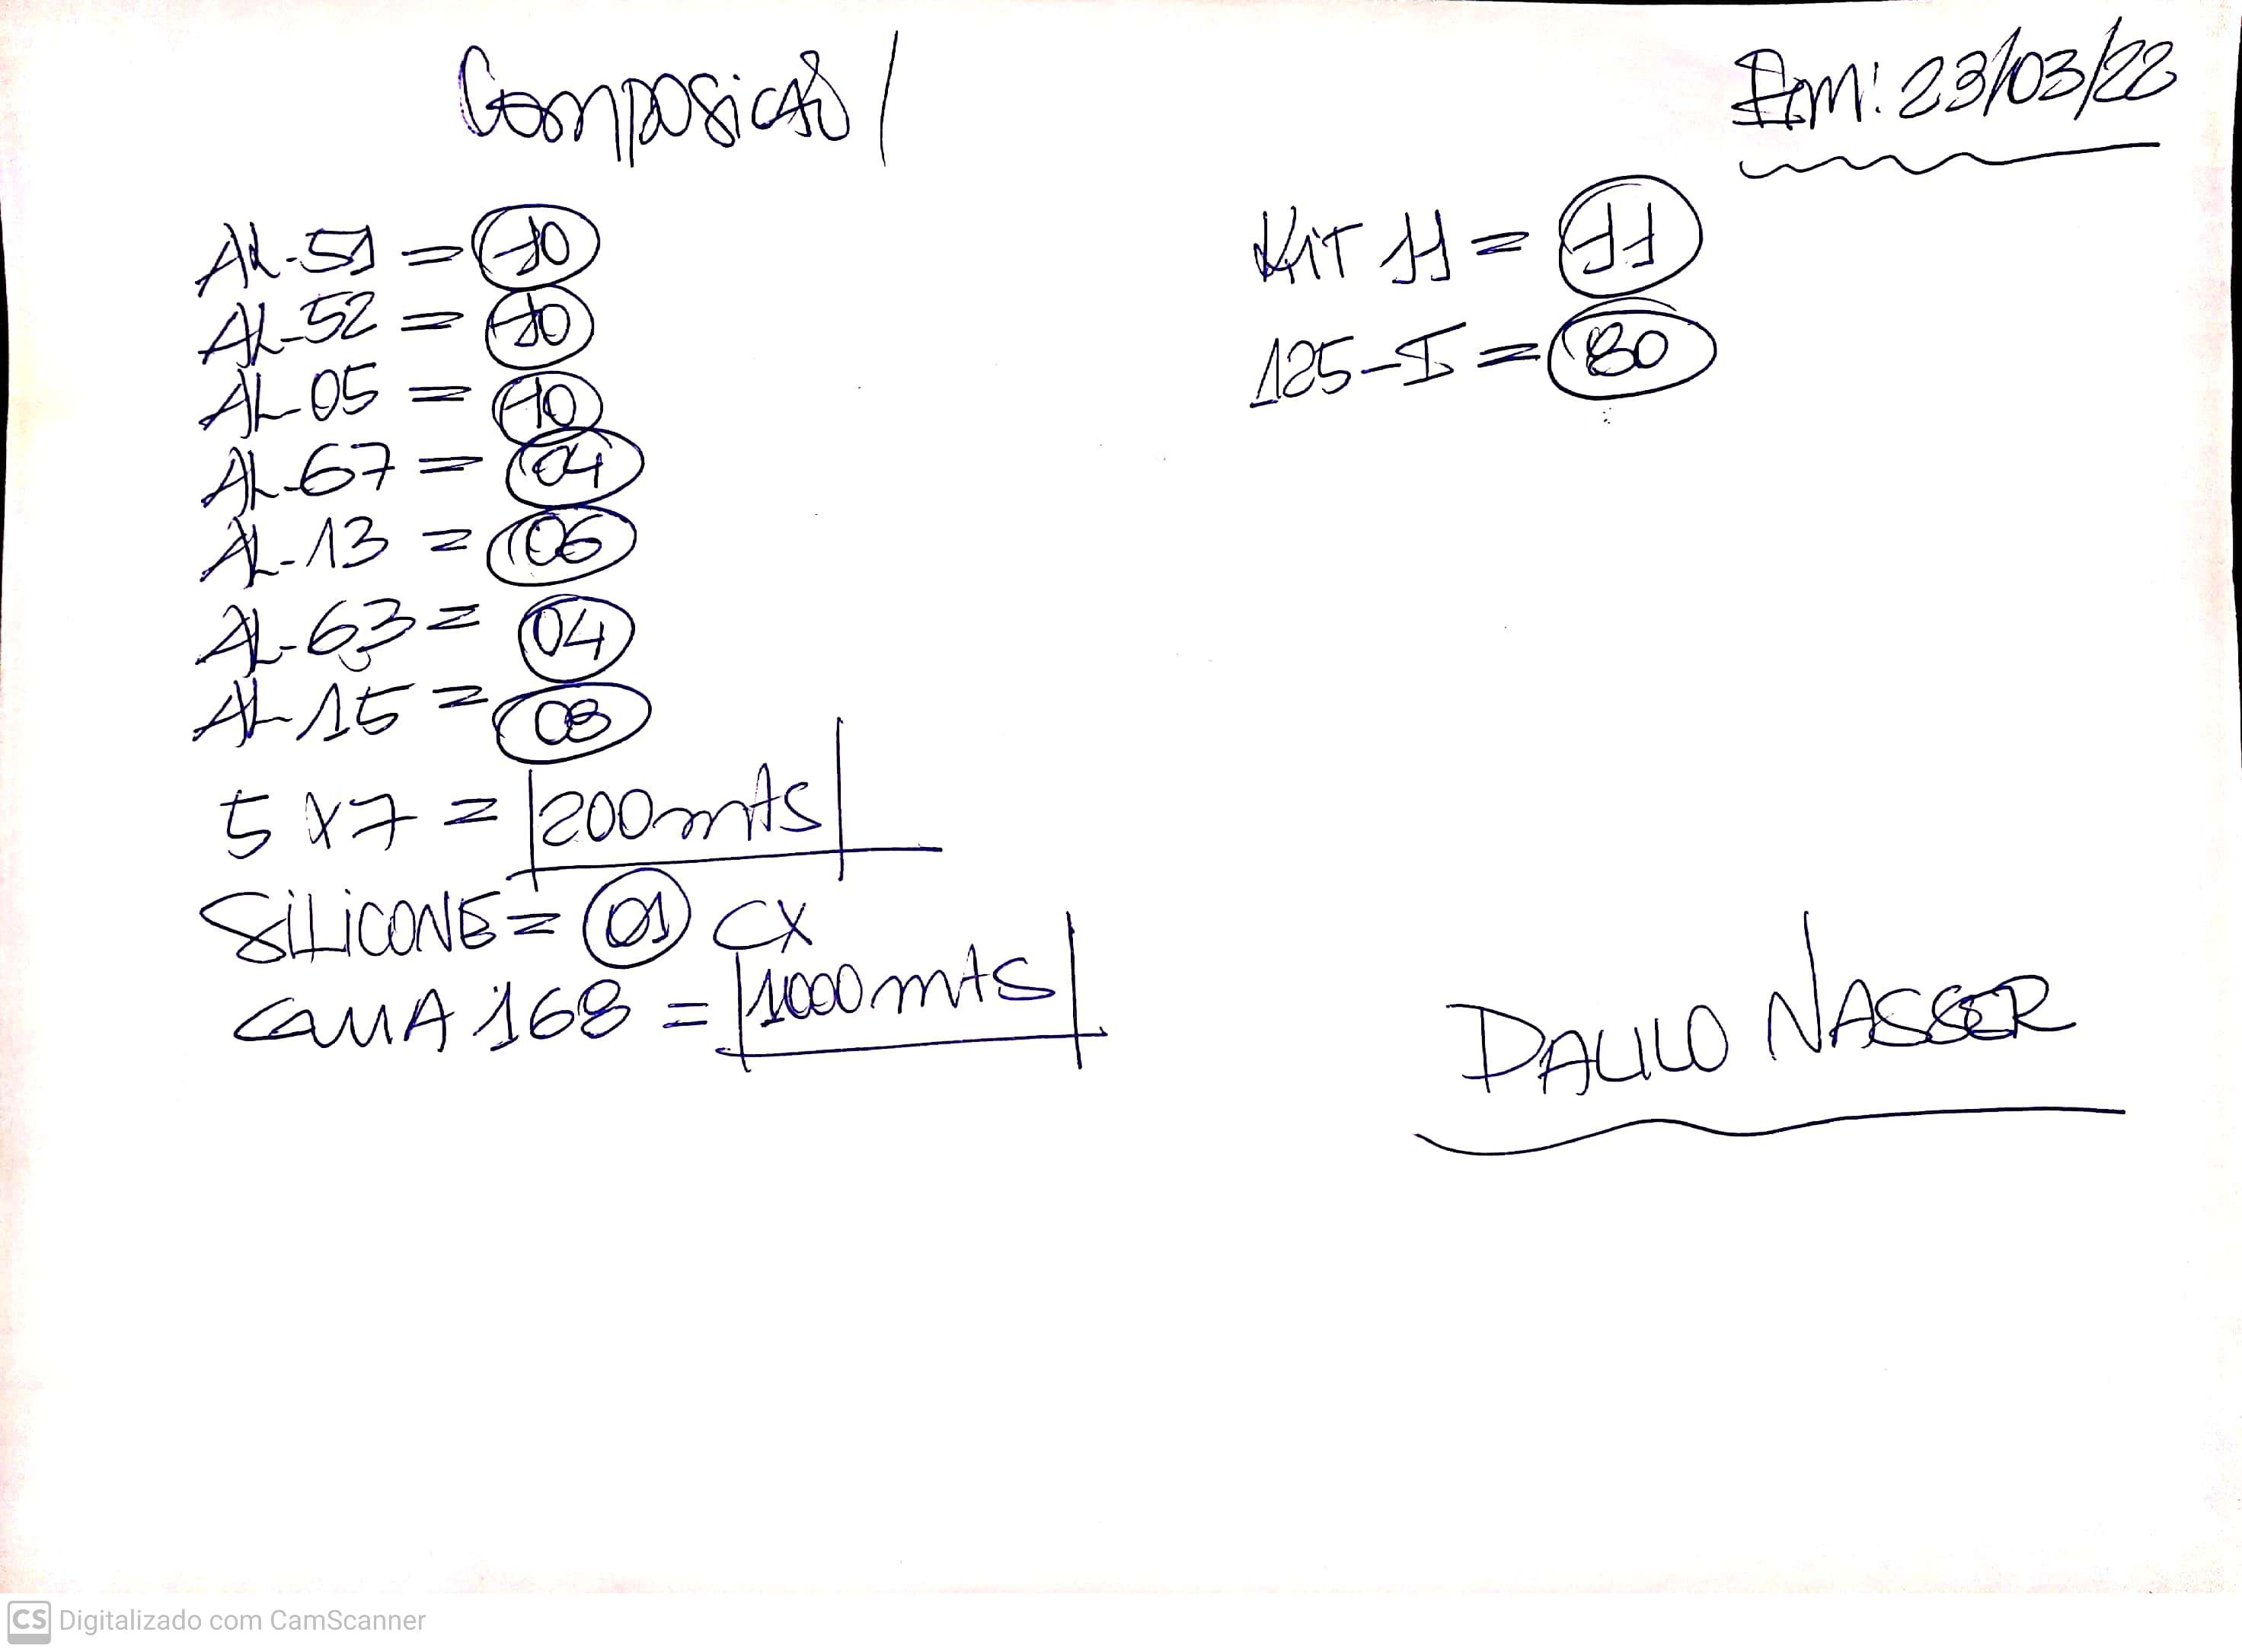 Composicaõ /
Em: 23/03/22
AL-51 = 10
AL-52 = 10
AL-05 = 10
AL-67 = 04
AL-13 = 06
AL-63 = 04
AL-15 = 08
5x7 = 200mts
SiLiCONE = 01 CX
168 = 1000mts
KiT 11 = 11
125-I = 80
PAULO NASSER
CS Digitalizado com CamScanner